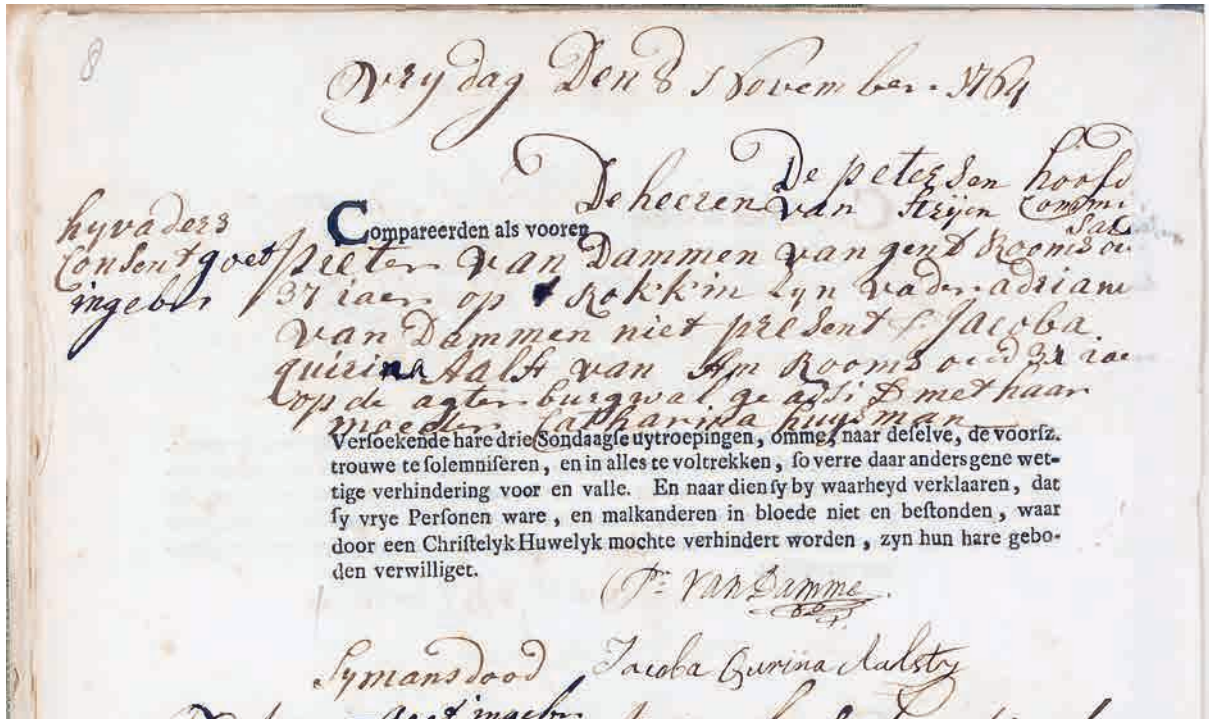 8
Vrydag Den 8 November 1764
De petersen hooft
De heeren van Strijen Commi
sac
hyvaders
Consent goet
ingeber
Compareerden als vooren
Pieter van Dammen van gend Rooms ou
37 iaer op Rokkin zyn vader adriaan
van Dammen niet present & Jacoba
quirina Aalst van Am Rooms oud 32 iae
op de agterburgwal geadsi D met haar
moeder Catharina huysman
Verſoekende hare drie Sondaagſe uytroepingen, omme, naar deſelve, de voorſz.
trouwe te ſolemniſeren, en in alles te voltrekken, ſo verre daar anders gene wet-
tige verhindering voor en valle. En naar dien ſy by waarheyd verklaaren, dat
ſy vrye Perſonen ware, en malkanderen in bloede niet en beſtonden, waar
door een Chriſtelyk Huwelyk mochte verhindert worden, zyn hun hare gebo-
den verwilliget.
Pr. VanDamme
Symansdood Jacoba Qurina Aalsty
goet ingeber